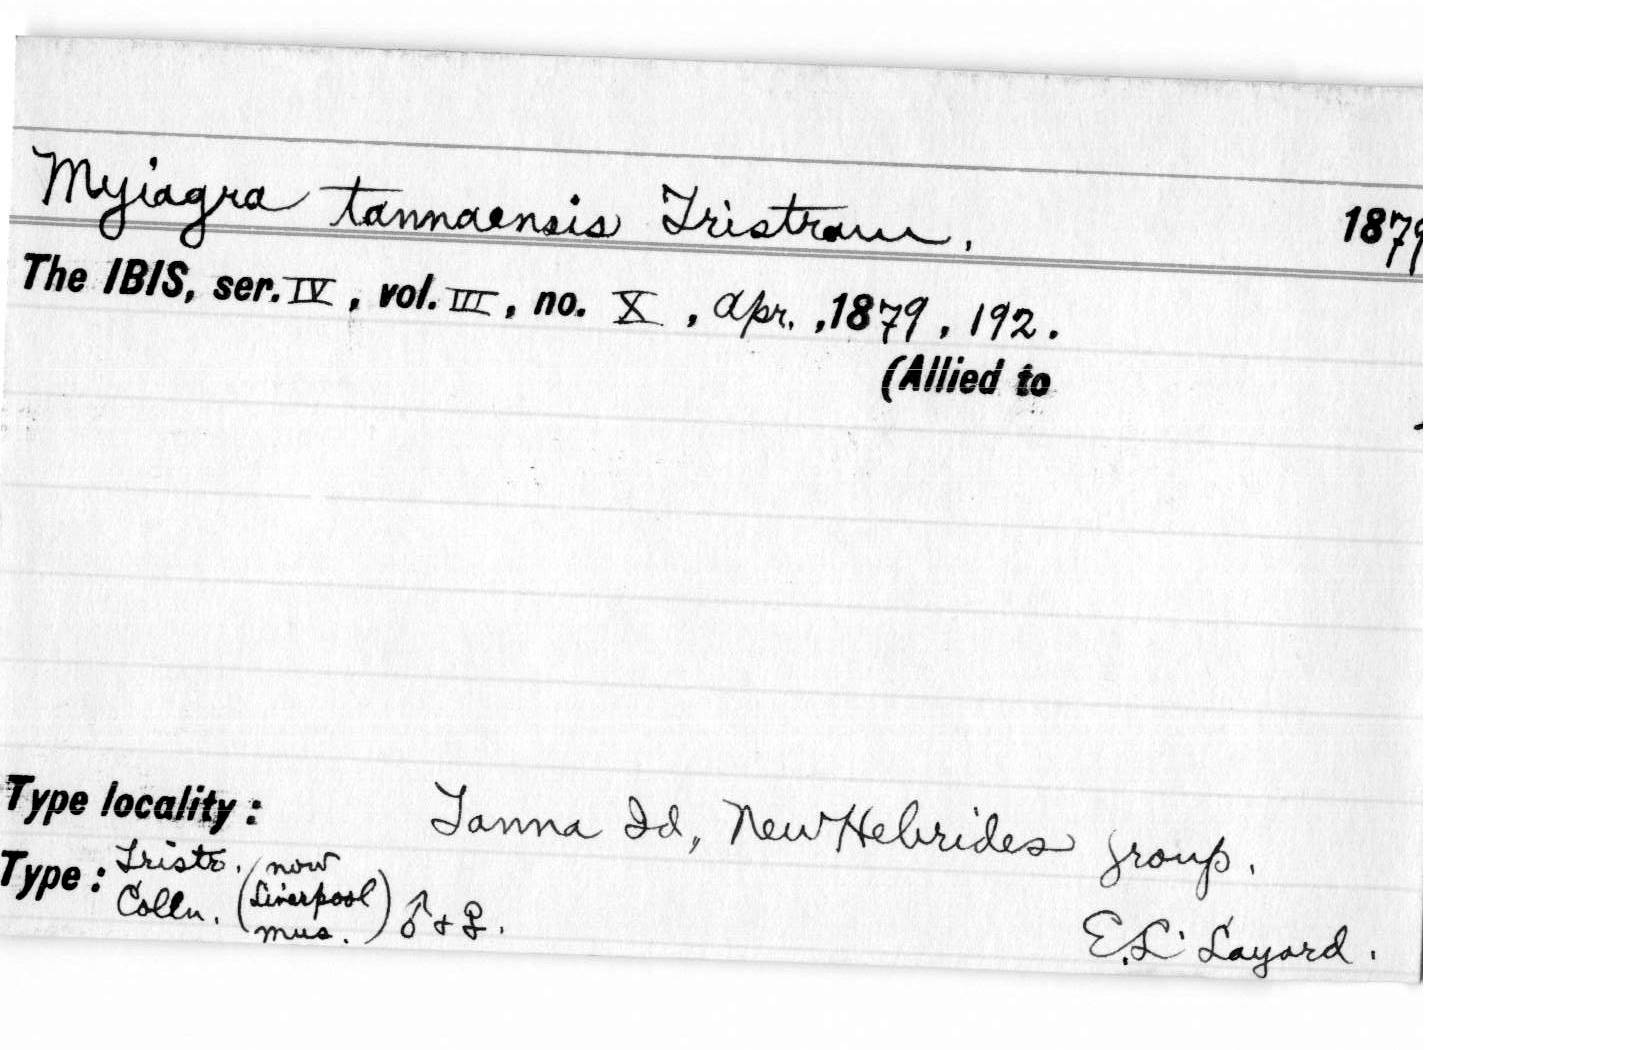 Myiagra tannaensis Tristram. 1879
The IBIS, ser. IV, vol. III, no. X, Apr., 1879, 192.
(Allied to
Type locality: Tanna Id., New Hebrides group.
Type: Tristr. Colln. (now Liverpool mus.) ♂ + ♀.
E.L. Layard.